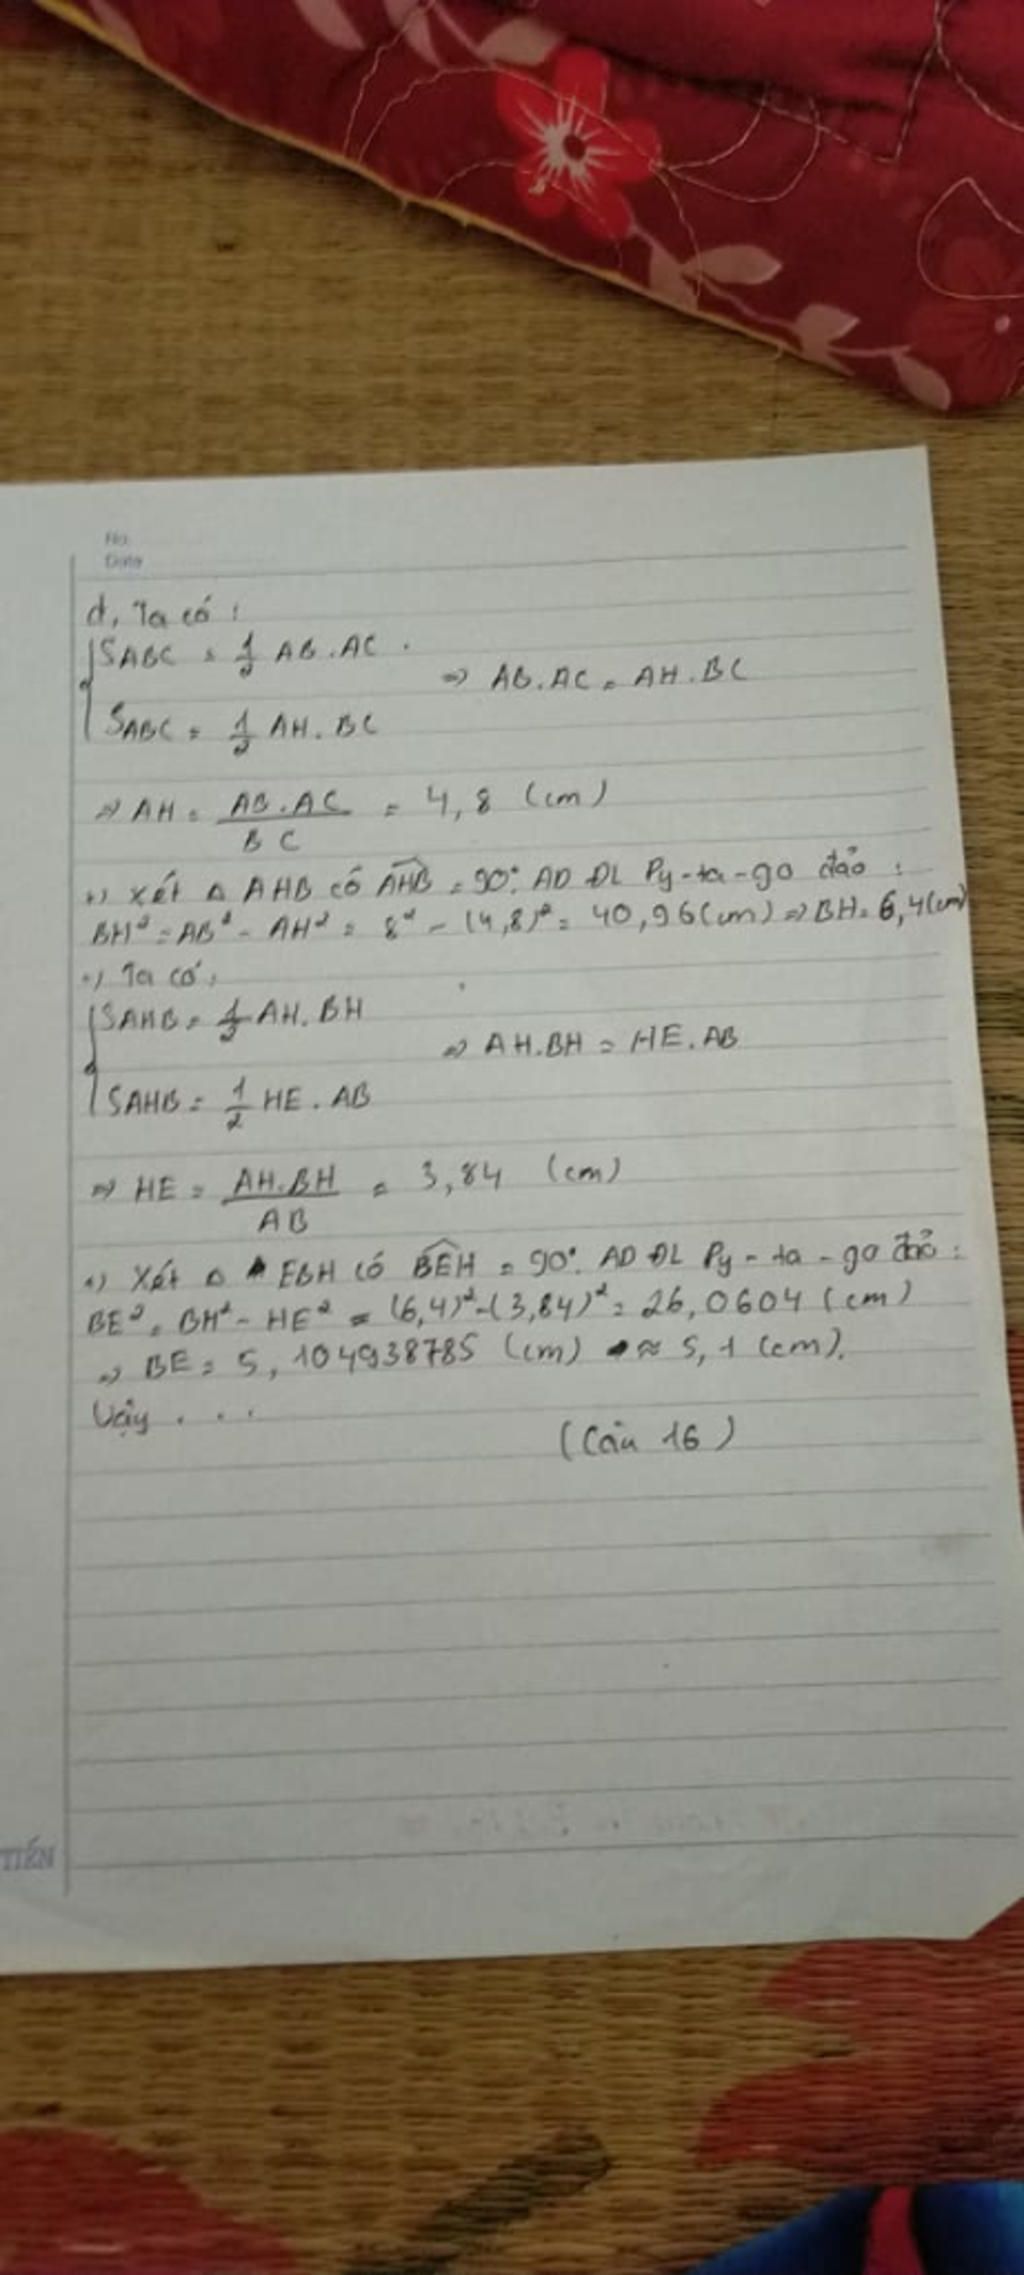 No.
Date
d, Ta có:
SABC = 1/2 AB.AC.
=> AB.AC = AH.BC
SABC = 1/2 AH.BC
=> AH = AB.AC/BC = 4,8 (cm)
+) Xét Δ AHB có AHB = 90°. AD ĐL Py-ta-go đảo:
BH² = AB² - AH² = 8² - (4,8)² = 40,96(cm) => BH = 6,4(cm)
+) Ta có:
SAHB = 1/2 AH.BH
=> AH.BH = HE.AB
SAHB = 1/2 HE.AB
=> HE = AH.BH/AB = 3,84 (cm)
+) Xét Δ EBH có BEH = 90°. AD ĐL Py-ta-go đảo:
BE² = BH² - HE² = (6,4)² - (3,84)² = 26,0604 (cm)
=> BE = 5,104938785 (cm) ≈ 5,1 (cm).
Vậy ...
(Câu 16)
TIẾN